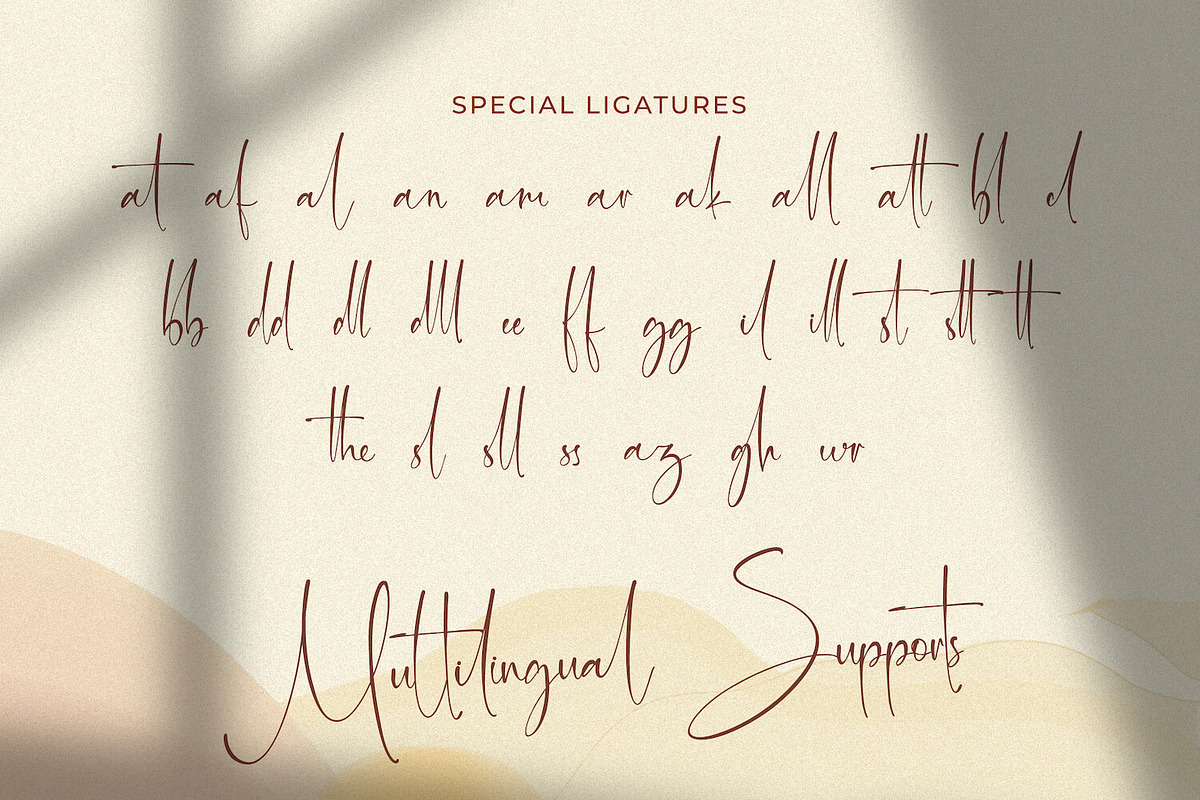 SPECIAL LIGATURES
at af al an am ar ak all att bl d
bb dd dl dll ee ff gg il ill st stt tt
the sl sll ss az gh wr
Multilingual Supports